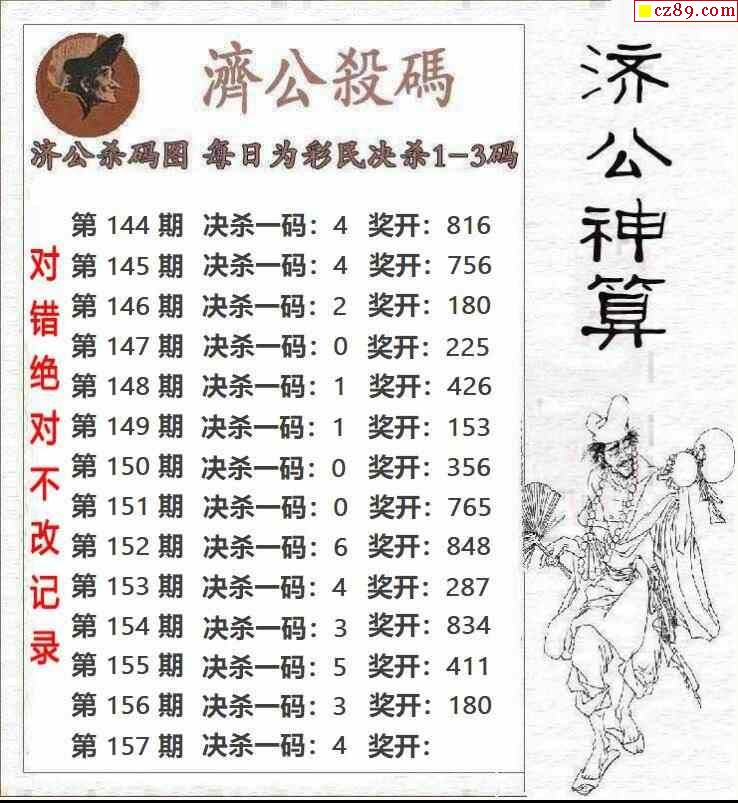 cz89.com
濟公殺碼
济公杀码图 每日为彩民决杀1-3码
第 144 期 决杀一码：4 奖开：816
第 145 期 决杀一码：4 奖开：756
第 146 期 决杀一码：2 奖开：180
第 147 期 决杀一码：0 奖开：225
第 148 期 决杀一码：1 奖开：426
第 149 期 决杀一码：1 奖开：153
第 150 期 决杀一码：0 奖开：356
第 151 期 决杀一码：0 奖开：765
第 152 期 决杀一码：6 奖开：848
第 153 期 决杀一码：4 奖开：287
第 154 期 决杀一码：3 奖开：834
第 155 期 决杀一码：5 奖开：411
第 156 期 决杀一码：3 奖开：180
第 157 期 决杀一码：4 奖开：
对错绝对不改记录
济公神算